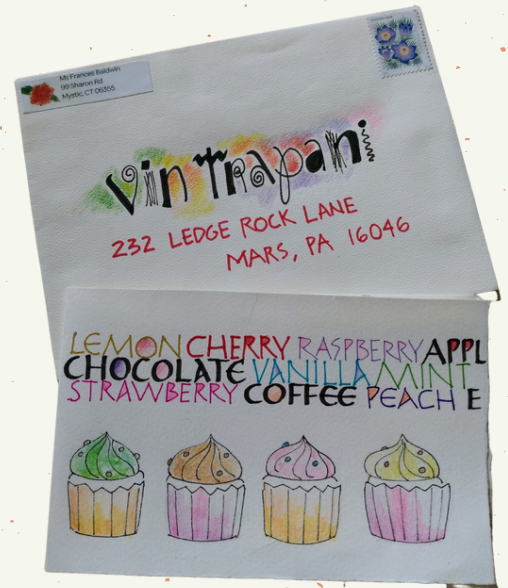 Ms Frances Baldwin
99 Sharon Rd
Mystic, CT 06355
Vin Trapani
232 LEDGE ROCK LANE
MARS, PA 16046
LEMON CHERRY RASPBERRY APPL
CHOCOLATE VANILLA MINT
STRAWBERRY COFFEE PEACH E